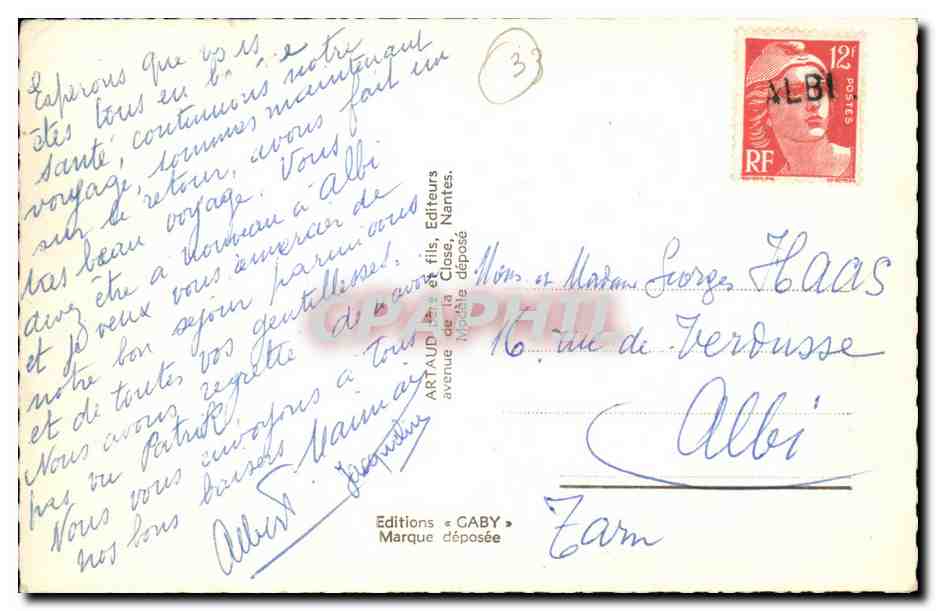 Espérons que vous
êtes tous en bonne
santé, continuons notre
voyage, sommes maintenant
sur le retour, avons fait un
très beau voyage. Vous
devez être à nouveau à Albi
et je veux vous remercier de
notre bon séjour parmi vous
et de toutes vos gentillesses.
Nous avons regretté de n'avoir
pas vu Patrick.
Nous vous envoyons à tous
nos bons baisers
Albert Jacqueline
33
12F
POSTES
RF
ALBI
ARTAUD père et fils, Editeurs
avenue de la Close, Nantes.
Modèle déposé
CPAPHIL
Mons et Madame Georges HAAS
16. rue de Verdusse
Albi
Tarn
Editions « GABY »
Marque déposée